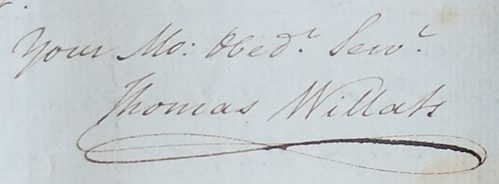 Your Mo: Obedt. Servt.
Thomas Willats